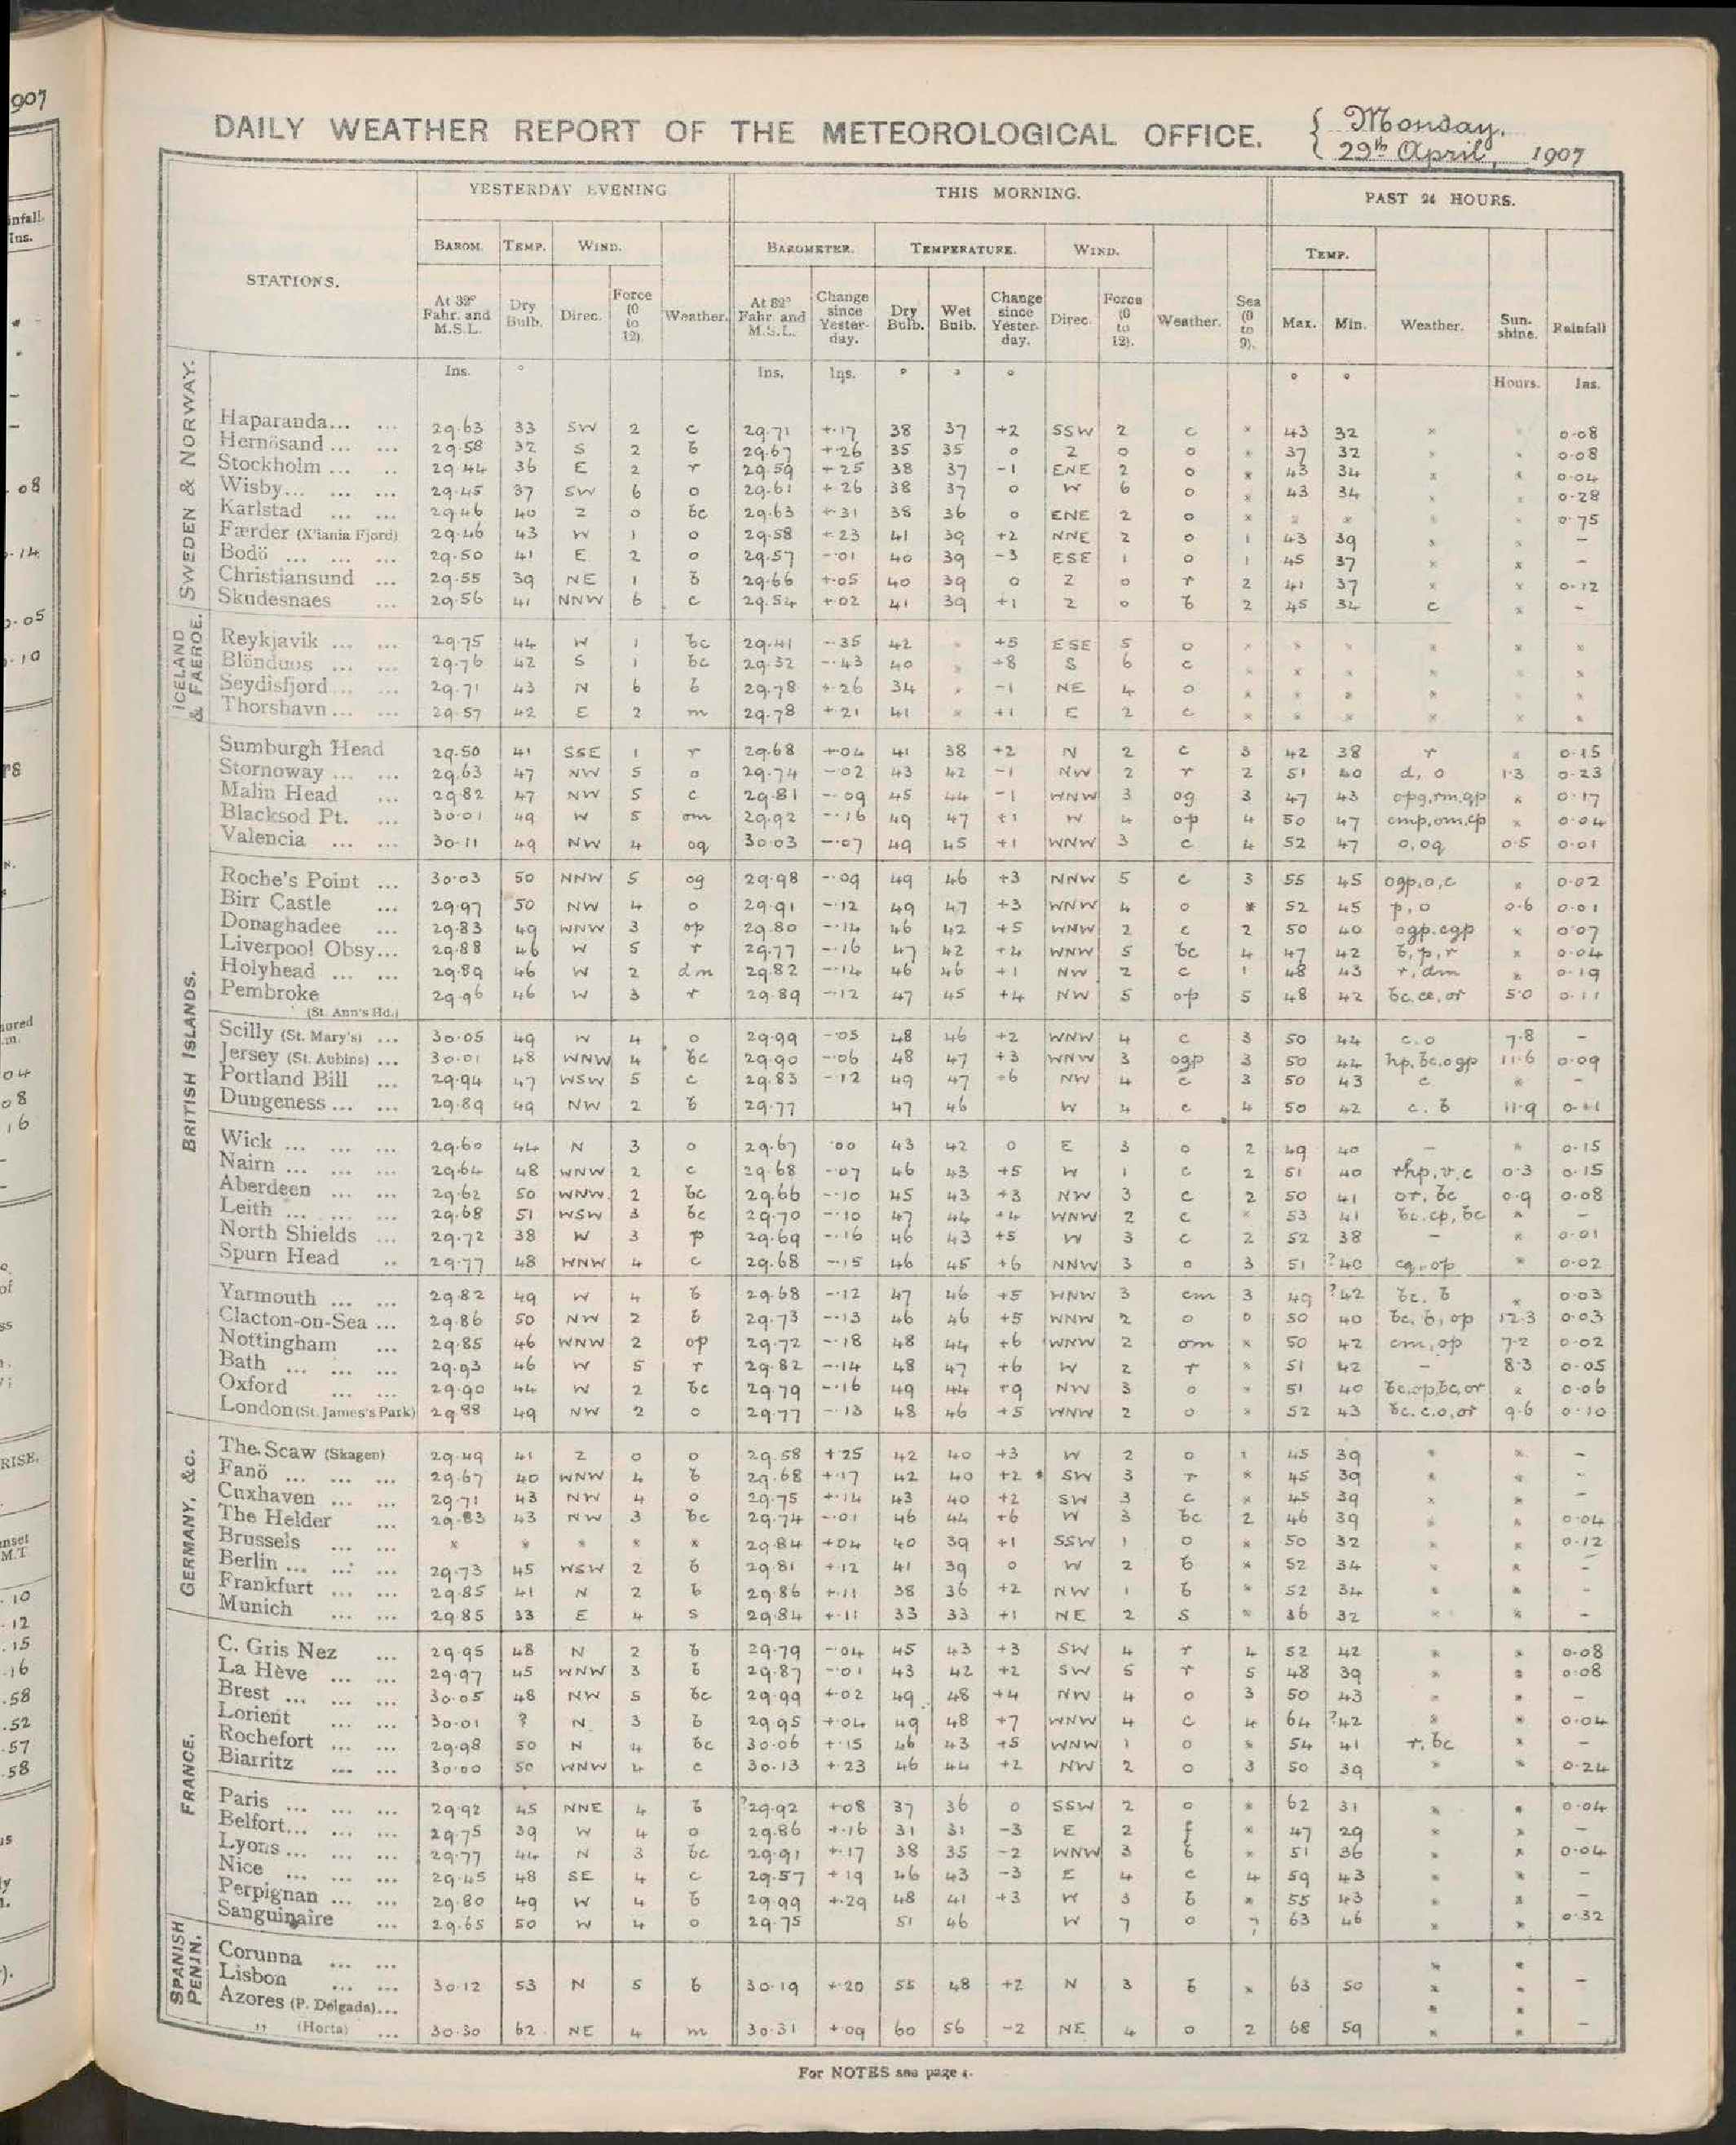 907
DAILY WEATHER REPORT OF THE METEOROLOGICAL OFFICE. { Monday, 29th April, 1907
YESTERDAY EVENING THIS MORNING. PAST 24 HOURS.
BAROM. TEMP. WIND. BAROMETER. TEMPERATURE. WIND. TEMP.
STATIONS. At 32° Fahr. and M.S.L. Dry Bulb. Direc. Force (0 to 12). Weather. At 32° Fahr. and M.S.L. Change since Yesterday. Dry Bulb. Wet Bulb. Change since Yesterday. Direc. Force (0 to 12). Weather. Sea (0 to 9). Max. Min. Weather. Sunshine. Rainfall
Ins. ° Ins. Ins. ° ° ° ° ° Hours. Ins.
SWEDEN & NORWAY.
Haparanda... ... 29.63 33 SW 2 c 29.71 +.17 38 37 +2 SSW 2 c * 43 32 * * 0.08
Hernösand ... ... 29.58 32 S 2 b 29.67 +.26 35 35 0 Z 0 0 * 37 32 * * 0.08
Stockholm ... .. 29.44 36 E 2 r 29.59 +.25 38 37 -1 ENE 2 o * 43 34 * * 0.04
Wisby... ... ... 29.45 37 SW 6 o 29.61 +.26 38 37 0 W 6 o * 43 34 * * 0.28
Karlstad ... ... 29.46 40 Z 0 bc 29.63 +.31 38 36 0 ENE 2 o * * * * * 0.75
Færder (X'iania Fjord) 29.46 43 W 1 o 29.58 +.23 41 39 +2 NNE 2 o 1 43 39 * * -
Bodö ... ... ... 29.50 41 E 2 o 29.57 -.01 40 39 -3 ESE 1 o 1 45 37 * * -
Christiansund ... 29.55 39 NE 1 b 29.66 +.05 40 39 0 Z 0 r 2 41 37 * * 0.12
Skudesnaes ... 29.56 41 NNW 6 c 29.54 +.02 41 39 +1 Z 0 b 2 45 34 c * -
ICELAND & FAEROE.
Reykjavik ... ... 29.75 44 W 1 bc 29.41 -.35 42 * +5 ESE 5 o * * * * * *
Blönduos ... ... 29.76 42 S 1 bc 29.32 -.43 40 * +8 S 6 c * * * * * *
Seydisfjord... ... 29.71 43 N 6 b 29.78 +.26 34 * -1 NE 4 o * * * * * *
Thorshavn ... ... 29.57 42 E 2 m 29.78 +.21 41 * +1 E 2 c * * * * * *
BRITISH ISLANDS.
Sumburgh Head 29.50 41 SSE 1 r 29.68 +.04 41 38 +2 N 2 c 3 42 38 r * 0.15
Stornoway ... ... 29.63 47 NW 5 o 29.74 -.02 43 42 -1 NW 2 r 2 51 40 d, o 1.3 0.23
Malin Head ... 29.82 47 NW 5 c 29.81 -.09 45 44 -1 WNW 3 og 3 47 43 opq,rm,qp * 0.17
Blacksod Pt. ... 30.01 49 W 5 om 29.92 -.16 49 47 +1 W 4 op 4 50 47 cmp,om,cp * 0.04
Valencia ... ... 30.11 49 NW 4 oq 30.03 -.07 49 45 +1 WNW 3 c 4 52 47 o,oq 0.5 0.01
Roche's Point ... 30.03 50 NNW 5 og 29.98 -.09 49 46 +3 NNW 5 c 3 55 45 ogp,o,c * 0.02
Birr Castle ... 29.97 50 NW 4 o 29.91 -.12 49 47 +3 WNW 4 o * 52 45 p, o 0.6 0.01
Donaghadee ... 29.83 49 WNW 3 op 29.80 -.14 46 42 +5 WNW 2 c 2 50 40 ogp.cgp * 0.07
Liverpool Obsy... 29.88 46 W 5 r 29.77 -.16 47 42 +4 WNW 5 bc 4 47 42 b,p,r * 0.04
Holyhead ... ... 29.89 46 W 2 dm 29.82 -.14 46 46 +1 NW 2 c 1 48 43 r,dm * 0.19
Pembroke (St. Ann's Hd.) 29.96 46 W 3 r 29.89 -.12 47 45 +4 NW 5 op 5 48 42 bc.ce,or 5.0 0.11
Scilly (St. Mary's) ... 30.05 49 W 4 o 29.99 -.05 48 46 +2 WNW 4 c 3 50 44 c.o 7.8 -
Jersey (St. Aubins) ... 30.01 48 WNW 4 bc 29.90 -.06 48 47 +3 WNW 3 ogp 3 50 44 hp,bc,ogp 11.6 0.09
Portland Bill ... 29.94 47 WSW 5 c 29.83 -.12 49 47 +6 NW 4 c 3 50 43 c * -
Dungeness ... ... 29.89 49 NW 2 b 29.77 47 46 W 4 c 4 50 42 c. b 11.9 0.11
Wick ... ... ... 29.60 44 N 3 o 29.67 .00 43 42 0 E 3 o 2 49 40 - * 0.15
Nairn ... ... ... 29.64 48 WNW 2 c 29.68 -.07 46 43 +5 W 1 c 2 51 40 rhp,v,c 0.3 0.15
Aberdeen ... ... 29.62 50 WNW 2 bc 29.66 -.10 45 43 +3 NW 3 c 2 50 41 or, bc 0.9 0.08
Leith ... ... ... 29.68 51 WSW 3 bc 29.70 -.10 47 44 +4 WNW 2 c * 53 41 bc.cp, bc * -
North Shields ... 29.72 38 W 3 p 29.69 -.16 46 43 +5 W 3 c 2 52 38 - * 0.01
Spurn Head .. 29.77 48 WNW 4 c 29.68 -.15 46 45 +6 NNW 3 o 3 51 ?40 cq,op * 0.02
Yarmouth ... ... 29.82 49 W 4 b 29.68 -.12 47 46 +5 WNW 3 cm 3 49 ?42 bc. b * 0.03
Clacton-on-Sea ... 29.86 50 NW 2 b 29.73 -.13 46 46 +5 WNW 2 o 0 50 40 bc, b, op 12.3 0.03
Nottingham ... 29.85 46 WNW 2 op 29.72 -.18 48 44 +6 WNW 2 om * 50 42 cm, op 7.2 0.02
Bath ... ... ... 29.93 46 W 5 r 29.82 -.14 48 47 +6 W 2 r * 51 42 - 8.3 0.05
Oxford ... ... 29.90 44 W 2 bc 29.79 -.16 49 44 +9 NW 3 o * 51 40 bc.op,bc,or * 0.06
London (St. James's Park) 29.88 49 NW 2 o 29.77 -.13 48 46 +5 WNW 2 o * 52 43 bc.c.o,or 9.6 0.10
GERMANY, &c.
The Scaw (Skagen) 29.49 41 Z 0 o 29.58 +.25 42 40 +3 W 2 o 1 45 39 * * -
Fanö ... ... ... 29.67 40 WNW 4 b 29.68 +.17 42 40 +2 SW 3 r * 45 39 * * -
Cuxhaven ... ... 29.71 43 NW 4 o 29.75 +.14 43 40 +2 SW 3 c * 45 39 * * -
The Helder ... 29.83 43 NW 3 bc 29.74 -.01 46 44 +6 W 3 bc 2 46 39 * * 0.04
Brussels ... ... * * * * * 29.84 +.04 40 39 +1 SSW 1 o * 50 32 * * 0.12
Berlin ... ... ... 29.73 45 WSW 2 b 29.81 +.12 41 39 0 W 2 b * 52 34 * * -
Frankfurt ... ... 29.85 41 N 2 b 29.86 +.11 38 36 +2 NW 1 b * 52 34 * * -
Munich ... ... 29.85 33 E 4 s 29.84 +.11 33 33 +1 NE 2 s * 36 32 * * -
FRANCE.
C. Gris Nez ... 29.95 48 N 2 b 29.79 -.04 45 43 +3 SW 4 r 4 52 42 * * 0.08
La Hève ... ... 29.97 45 WNW 3 b 29.87 -.01 43 42 +2 SW 5 r 5 48 39 * * 0.08
Brest ... ... ... 30.05 48 NW 5 bc 29.99 +.02 49 48 +4 NW 4 o 3 50 43 * * -
Lorient ... ... 30.01 ? N 3 b 29.95 +.04 49 48 +7 WNW 4 c 4 64 ?42 * * 0.04
Rochefort ... ... 29.98 50 N 4 bc 30.06 +.15 46 43 +5 WNW 1 o * 54 41 r, bc * -
Biarritz ... ... 30.00 50 WNW 4 c 30.13 +.23 46 44 +2 NW 2 o 3 50 39 * * 0.24
Paris ... ... ... 29.92 45 NNE 4 b ?29.92 +.08 37 36 0 SSW 2 o * 62 31 * * 0.04
Belfort... ... ... 29.75 39 W 4 o 29.86 +.16 31 31 -3 E 2 f * 47 29 * * -
Lyons ... ... ... 29.77 44 N 3 bc 29.91 +.17 38 35 -2 WNW 3 b * 51 36 * * 0.04
Nice ... ... ... 29.45 48 SE 4 c 29.57 +.19 46 43 -3 E 4 c 4 59 43 * * -
Perpignan ... ... 29.80 49 W 4 b 29.99 +.29 48 41 +3 W 3 b * 55 43 * * -
Sanguinaire ... 29.65 50 W 4 o 29.75 51 46 W 7 o 7 63 46 * * 0.32
SPANISH PENIN.
Corunna ... ... * *
Lisbon ... ... 30.12 53 N 5 b 30.19 +.20 55 48 +2 N 3 b * 63 50 * * -
Azores (P. Delgada)... * *
,, (Horta) ... 30.30 62 NE 4 m 30.31 +.09 60 56 -2 NE 4 o 2 68 59 * * -
For NOTES see page 4.